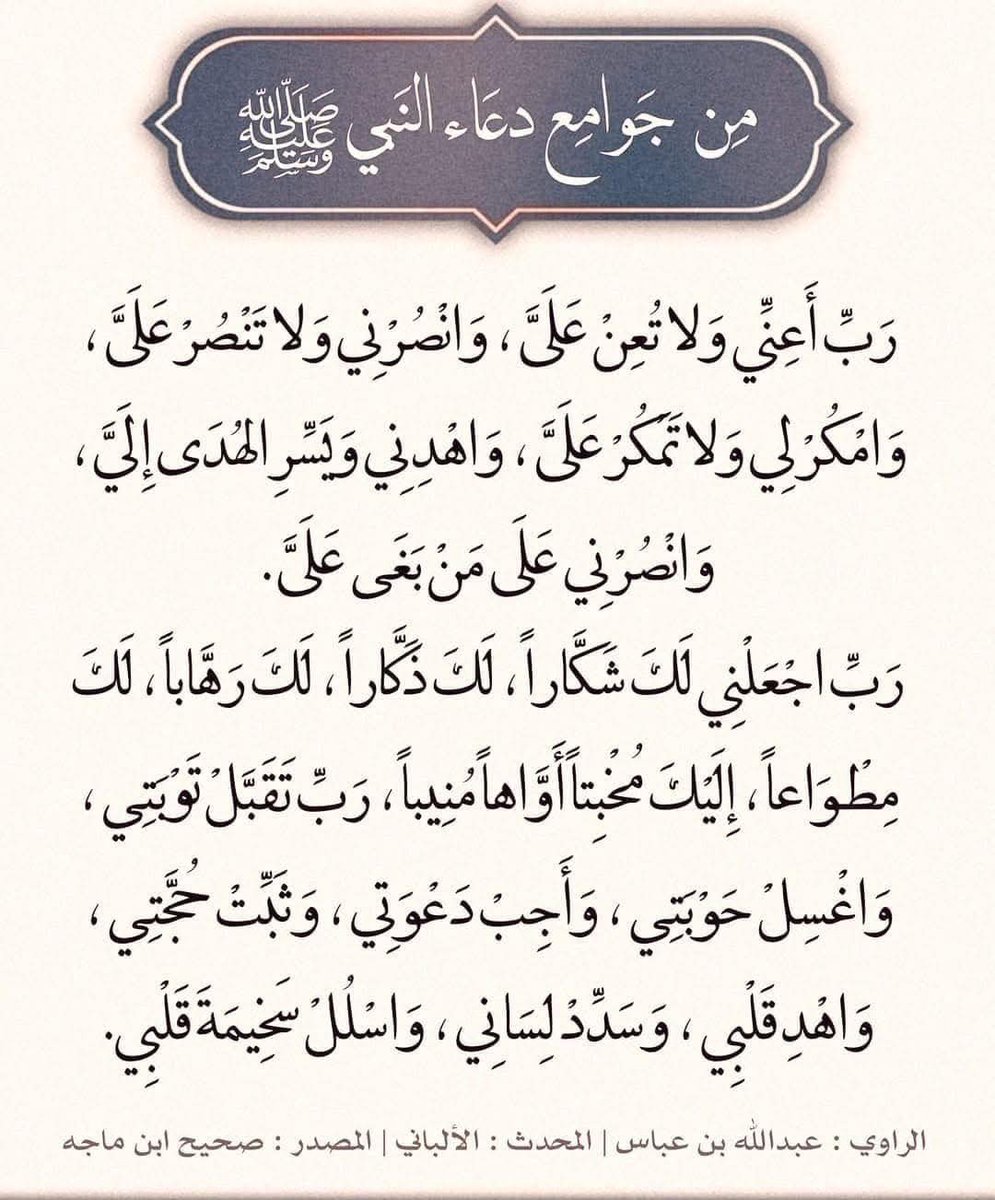 مِن جَوامِع دعَاء النَبي صَلَّى اللّٰه عَلَيْهِ وَسَلَّمَ
رَبِّ أَعِنِّي وَلا تُعِنْ عَلَيَّ، وَانْصُرْنِي وَلا تَنْصُرْ عَلَيَّ،
وَامْكُرْ لِي وَلا تَمْكُرْ عَلَيَّ، وَاهْدِنِي وَيَسِّرِ الهُدَى إِلَيَّ،
وَانْصُرْنِي عَلَى مَنْ بَغَى عَلَيَّ.
رَبِّ اجْعَلْنِي لَكَ شَكَّاراً، لَكَ ذَكَّاراً، لَكَ رَهَّاباً، لَكَ
مِطْوَاعاً، إِلَيْكَ مُخْبِتاً أَوَّاهاً مُنِيباً، رَبِّ تَقَبَّلْ تَوْبَتِي،
وَاغْسِلْ حَوْبَتِي، وَأَجِبْ دَعْوَتِي، وَثَبِّتْ حُجَّتِي،
وَاهْدِ قَلْبِي، وَسَدِّدْ لِسَانِي، وَاسْلُلْ سَخِيمَةَ قَلْبِي.
الراوي : عبدالله بن عباس | المحدث : الألباني | المصدر : صحيح ابن ماجه